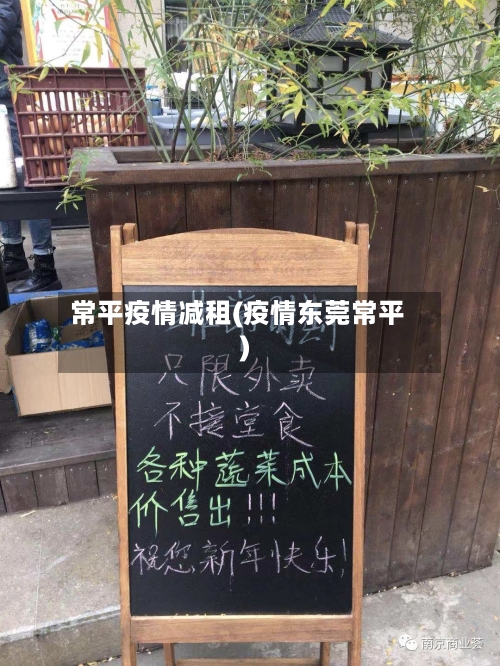 常平疫情减租(疫情东莞常平
)
只限外卖
不接堂食
各种蔬菜成本
价售出!!!
祝您新年快乐!
南京商业荟